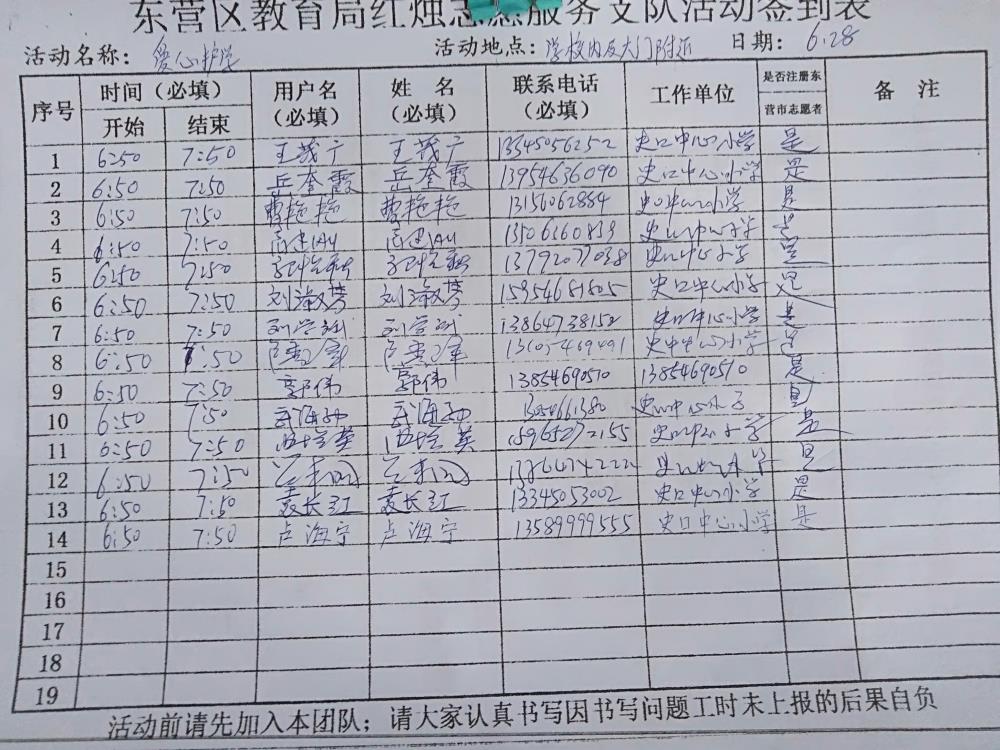 东营区教育局红烛志愿服务支队活动签到表
活动名称: 爱心护学 活动地点: 学校内及大门附近 日期: 6.28
序号 时间（必填） 开始 结束 用户名（必填） 姓 名（必填） 联系电话（必填） 工作单位 是否注册东营市志愿者 备 注
1 6:50 7:50 王茂广 王茂广 13345056252 史口中心小学 是
2 6:50 7:50 岳奎霞 岳奎霞 13954636090 史口中心小学 是
3 6:50 7:50 曹艳艳 曹艳艳 13156062884 史口中心小学 是
4 6:50 7:50 史口中心小学 是
5 6:50 7:50 13792077038 史口中心小学 是
6 6:50 7:50 刘海梦 刘海梦 15954681805 史口中心小学 是
7 6:50 7:50 刘学武 刘学武 13864738152 史口中心小学 是
8 6:50 7:50 史口中心小学 是
9 6:50 7:50 郭伟 郭伟 13854690510 13854690510 是
10 6:50 7:50 史口中心小学 是
11 6:50 7:50 15965272155 史口中心小学 是
12 6:50 7:50 史口中心小学 是
13 6:50 7:50 袁长江 袁长江 13345053002 史口中心小学 是
14 6:50 7:50 卢海宁 卢海宁 13589999555 史口中心小学 是
15
16
17
18
19
活动前请先加入本团队；请大家认真书写因书写问题工时未上报的后果自负